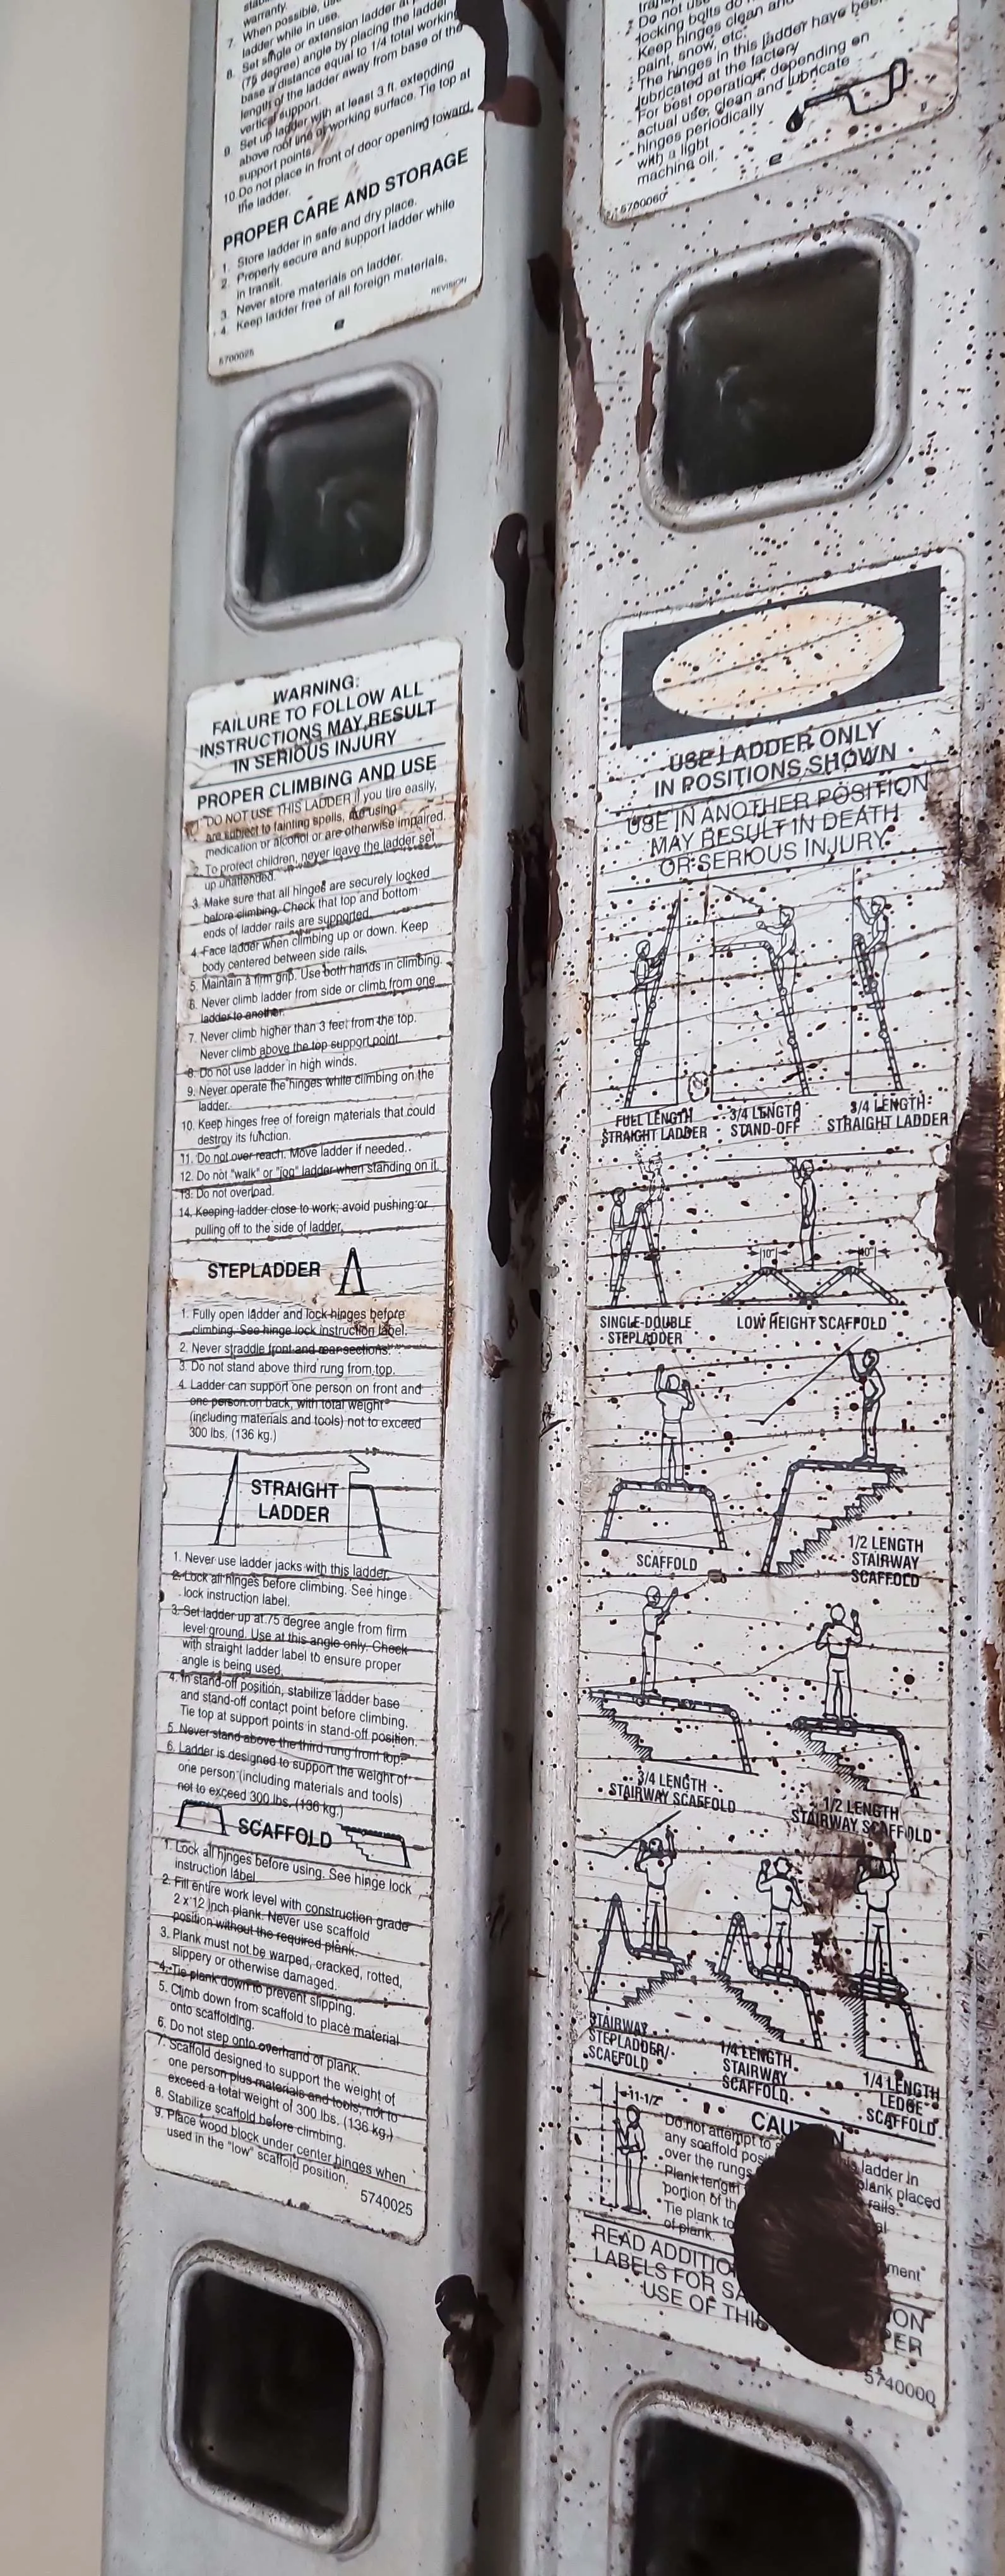 warranty.
7. When possible, use
ladder while in use.
8. Set single or extension ladder at
(75 degree) angle by placing the ladder
base a distance equal to 1/4 total working
length of the ladder away from base of the
vertical support.
9. Set up ladder with at least 3 ft. extending
above roof line or working surface. Tie top at
support points.
10. Do not place in front of door opening toward
the ladder.
PROPER CARE AND STORAGE
1. Store ladder in safe and dry place.
2. Properly secure and support ladder while
in transit.
3. Never store materials on ladder.
4. Keep ladder free of all foreign materials.
REVISION
5700025
WARNING:
FAILURE TO FOLLOW ALL
INSTRUCTIONS MAY RESULT
IN SERIOUS INJURY
PROPER CLIMBING AND USE
DO NOT USE THIS LADDER if you tire easily,
are subject to fainting spells, are using
medication or alcohol or are otherwise impaired.
2. To protect children, never leave the ladder set
up unattended.
3. Make sure that all hinges are securely locked
before climbing. Check that top and bottom
ends of ladder rails are supported.
4. Face ladder when climbing up or down. Keep
body centered between side rails.
5. Maintain a firm grip. Use both hands in climbing.
6. Never climb ladder from side or climb from one
ladder to another.
7. Never climb higher than 3 feet from the top.
Never climb above the top support point.
8. Do not use ladder in high winds.
9. Never operate the hinges while climbing on the
ladder.
10. Keep hinges free of foreign materials that could
destroy its function.
11. Do not over reach. Move ladder if needed.
12. Do not "walk" or "jog" ladder when standing on it.
13. Do not overload.
14. Keeping ladder close to work; avoid pushing or
pulling off to the side of ladder.
STEPLADDER
1. Fully open ladder and lock hinges before
climbing. See hinge lock instruction label.
2. Never straddle front and rear sections.
3. Do not stand above third rung from top.
4. Ladder can support one person on front and
one person on back, with total weight
(including materials and tools) not to exceed
300 lbs. (136 kg.)
STRAIGHT
LADDER
1. Never use ladder jacks with this ladder.
2. Lock all hinges before climbing. See hinge
lock instruction label.
3. Set ladder up at 75 degree angle from firm
level ground. Use at this angle only. Check
with straight ladder label to ensure proper
angle is being used.
4. In stand-off position, stabilize ladder base
and stand-off contact point before climbing.
Tie top at support points in stand-off position.
5. Never stand above the third rung front top
6. Ladder is designed to support the weight of
one person (including materials and tools)
not to exceed 300 lbs. (136 kg.)
SCAFFOLD
1. Lock all hinges before using. See hinge lock
instruction label
2. Fill entire work level with construction grade
2 x 12 inch plank. Never use scaffold
position without the required plank.
3. Plank must not be warped, cracked, rotted,
slippery or otherwise damaged.
4. Tie plank down to prevent slipping.
5. Climb down from scaffold to place material
onto scaffolding.
6. Do not step onto overhand of plank.
7. Scaffold designed to support the weight of
one person plus materials and tools, not to
exceed a total weight of 300 lbs. (136 kg.)
8. Stabilize scaffold before climbing.
9. Place wood block under center hinges when
used in the "low" scaffold position.
5740025
Do not use
locking bolts do
Keep hinges clean and
paint, snow, etc.
The hinges in this ladder have been
lubricated at the factory
For best operation, depending on
actual use, clean and lubricate
hinges periodically
with a light
machine oil.
5700060
USE LADDER ONLY
IN POSITIONS SHOWN
USE IN ANOTHER POSITION
MAY RESULT IN DEATH
OR SERIOUS INJURY
FULL LENGTH
STRAIGHT LADDER
3/4 LENGTH
STAND-OFF
3/4 LENGTH
STRAIGHT LADDER
10"
SINGLE-DOUBLE
STEPLADDER
LOW HEIGHT SCAFFOLD
SCAFFOLD
1/2 LENGTH
STAIRWAY
SCAFFOLD
3/4 LENGTH
STAIRWAY SCAFFOLD
1/2 LENGTH
STAIRWAY SCAFFOLD
STAIRWAY
STEPLADDER/
SCAFFOLD
1/4 LENGTH
STAIRWAY
SCAFFOLD
1/4 LENGTH
LEDGE
SCAFFOLD
11-1/2"
Do not attempt to ladder in
any scaffold plank placed
over the rungs rails.
Plank length
portion of
Tie plank to
of plank.
READ
LABELS FOR
USE OF
5740000